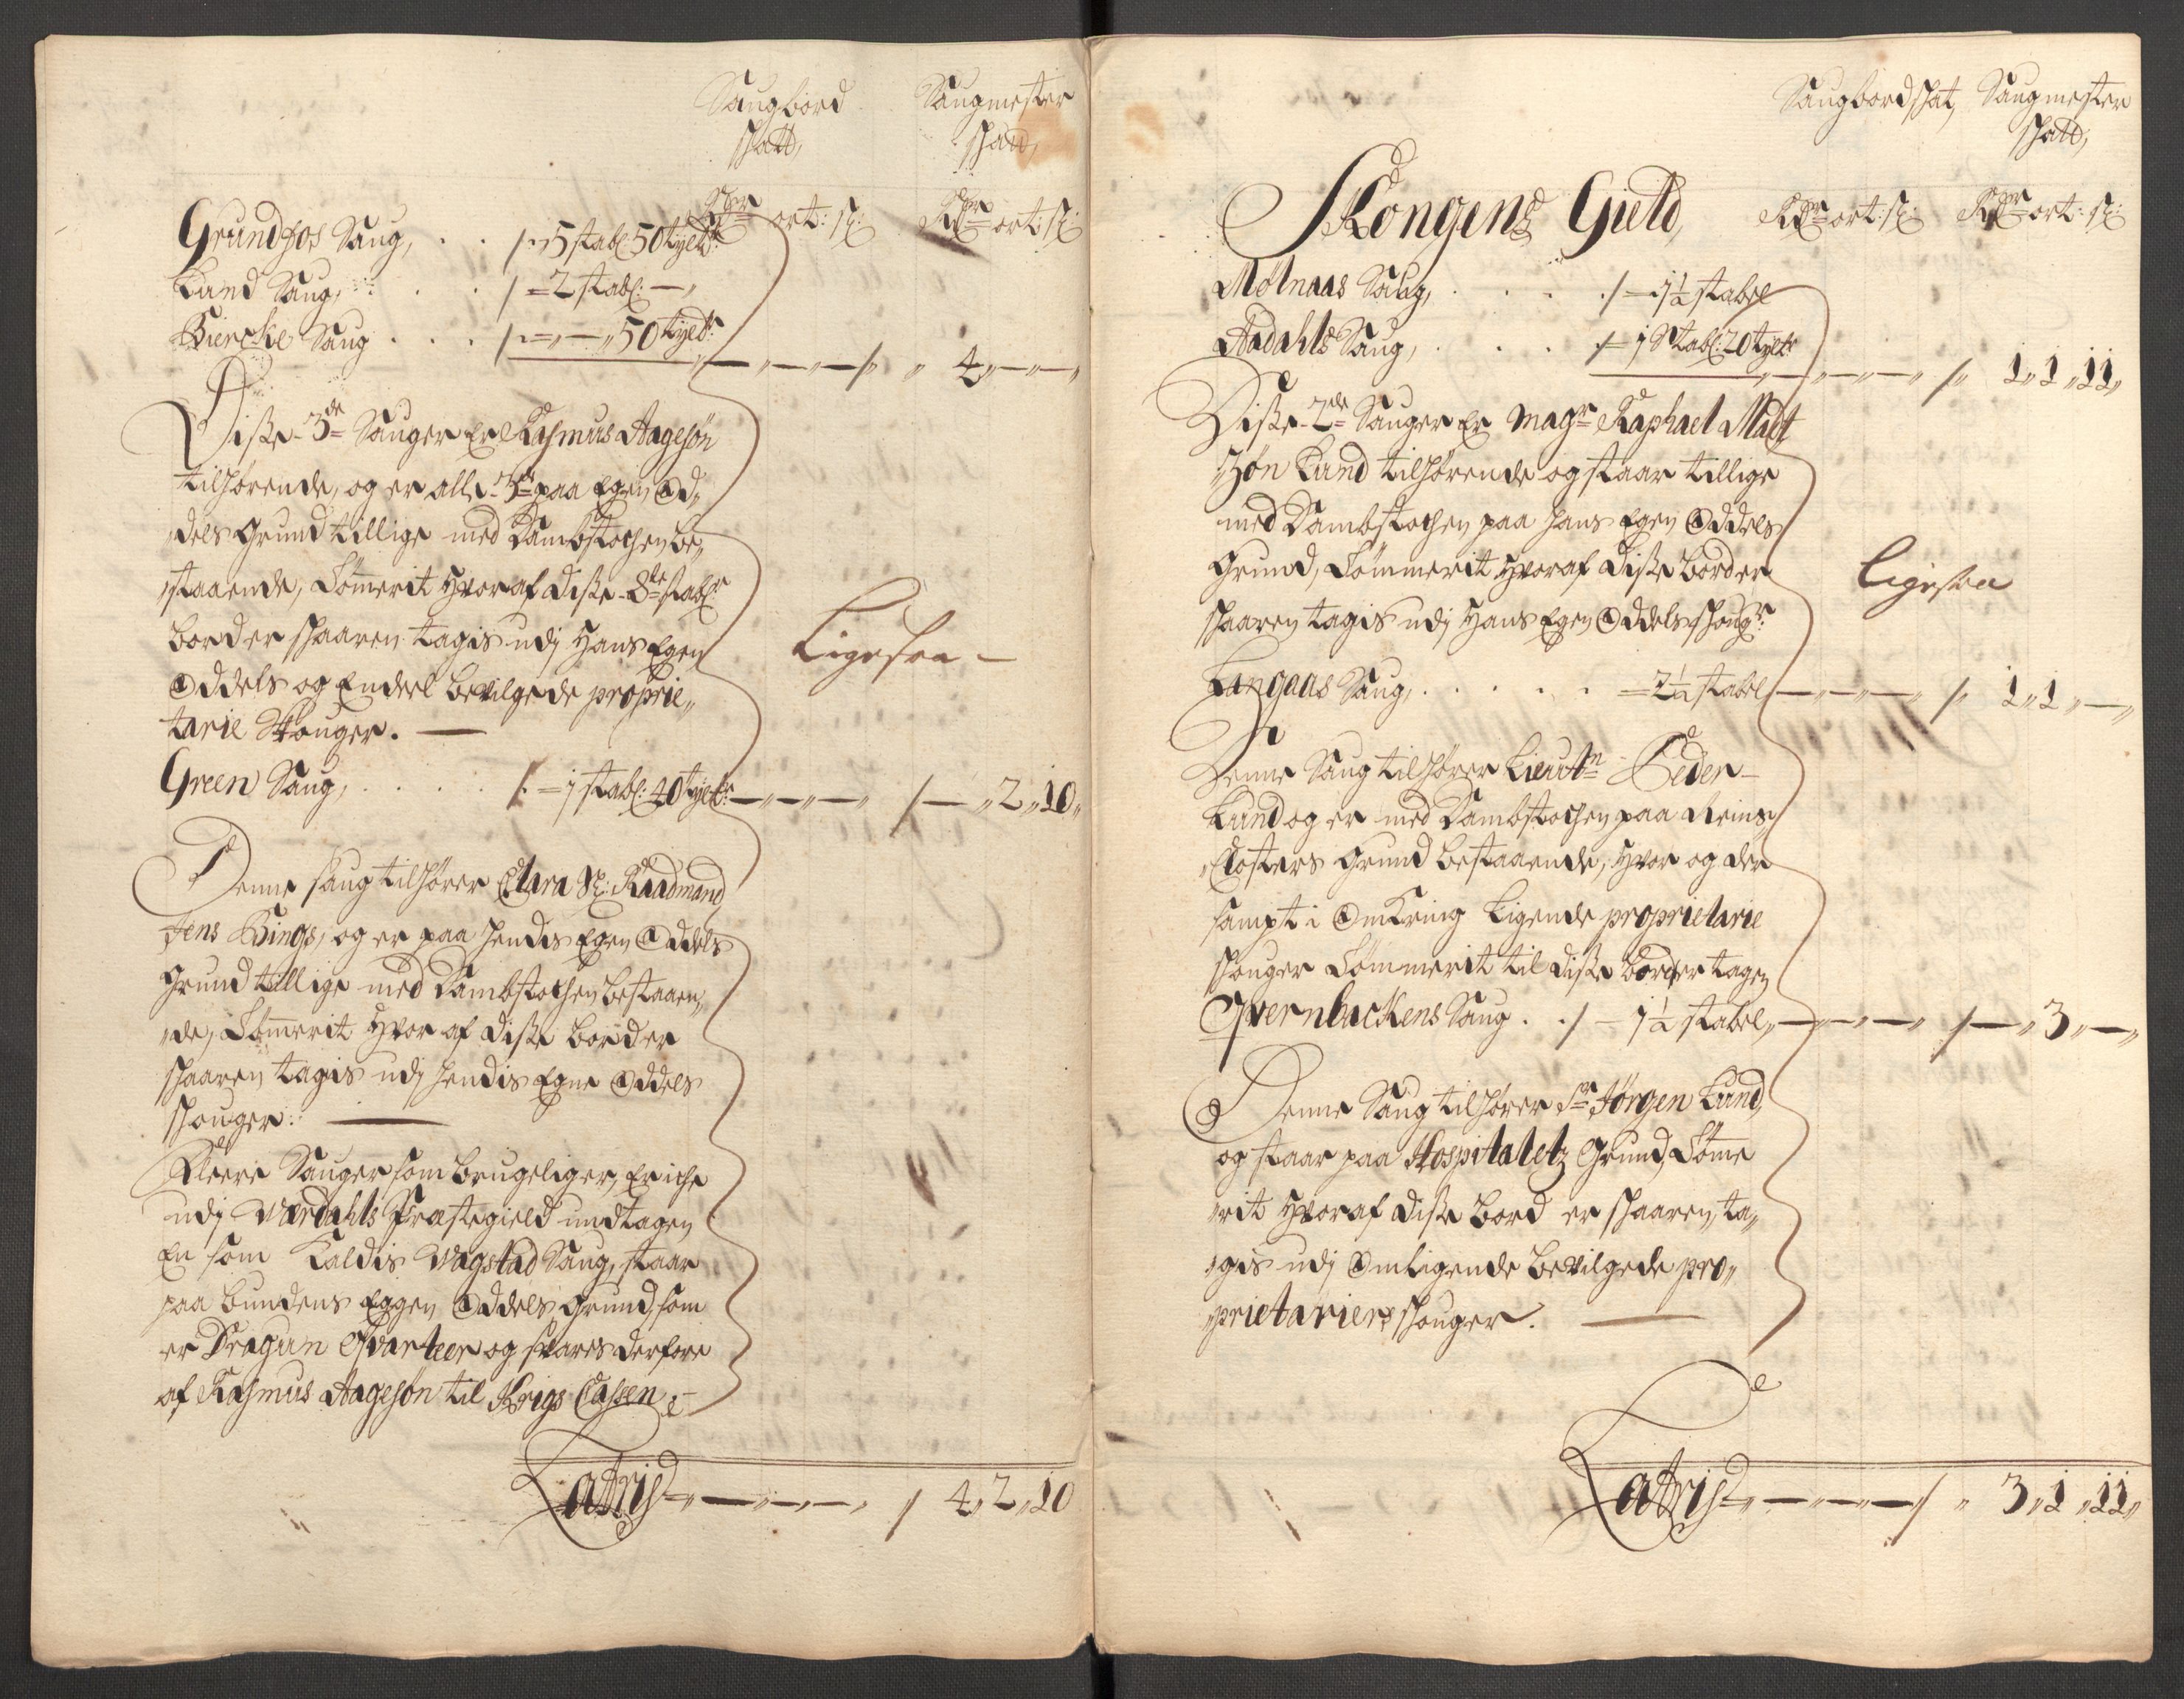 Saugbord Saugmester
skatt, skatt,
Rdr ort: sk: Rdr ort: sk:
Grundfos Saug, . . /: 5 stabl: 50 tylt:
Lund Saug, . . . / = 2 stabl: — „
Biercke Saug . . . . /: = „ — „ 50 tylt:
— „ — „ — / „ 4 „ — „ — „
Disse 3de Sauger Er Rasmus Aagesøn
tilhørende, og er alle 3de paa Egen Od„
„dels Grund tillige med Dambstochen be„
„staaende, Tømerit Hvoraf disse 8te stabl:
bord er skaaren tagis udj Hans Egen
Oddels og Endeel bevilgede proprie„
tarie Skouger. —
Ligesaa —
Green Saug, . . . . /: = 1 stabl: 40 tylt: — „ — „ — „ / — „ 2 „ 10 „
Denne saug tilhører Clara Sl: Raadmand
Jens Bings, og er paa hendis Egen Oddels
Grund tillige med Dambstochen bestaaen„
„de, Tømerit Hvor af disse bord er
skaaren tagis udj hendis Egne Oddels
skouger: —
Fleere Sauger som brugeliger, Er iche
udj Værdahls Præstegield undtagen
En som Kaldis Vagstad Saug, staar
paa bundens Eggen Oddels Grund, som
er Dragun Qvarteer og svares derfore
af Rasmus Aagesøn til Krigs Cassen: —
Latris — „ — „ — „ — „ / 4 „ 2 „ 10
Saugbord skat, Saugmester
skatt,
Skongens Gield, Rdr ort: sk: Rdr ort: sk:
Mølnaas Saug, . . . . / = 1½ stabel
Aadahls Saug, . . . . / = 1 Stabl: 20 tylt:
— „ — „ — „ / „ 1 „ 1 „ 11 „
Disse 2de Sauger Er Magr Raphael Madt
„zøn Lund tilhørende og staar tillige
med Dambstochen paa hans Egen Oddels
Grund, Tømmerit Hvoraf disse bord er
skaaren tagis udj Hans Egen Oddels skougr:
Ligesaa
Langaas Saug, . . . . . = 2½ stabel — „ — „ — „ / „ 1 „ 1 „ — „
Denne Saug tilhører Lieutn Peder
Lund og er med Dambstochen paa Reins
„Closters Grund bestaaende, Hvor og der
sampt i Omkring Ligende proprietarie
skouger Tømmerit til disse bord er tagen
Qvernbackens Saug . . / — 1½ stabel „ — „ — „ — „ / — „ 3 „ — „
Denne Saug tilhører Sr Jørgen Lund,
og staar paa Hospitaletz Grund, Tøme
„rit Hvoraf disse bord er skaaren, ta„
„gis udj Omligende bevilgede pro„
„prietariers skouger. —
Latris — „ — „ — „ — / „ 3 „ 1 „ 11 „